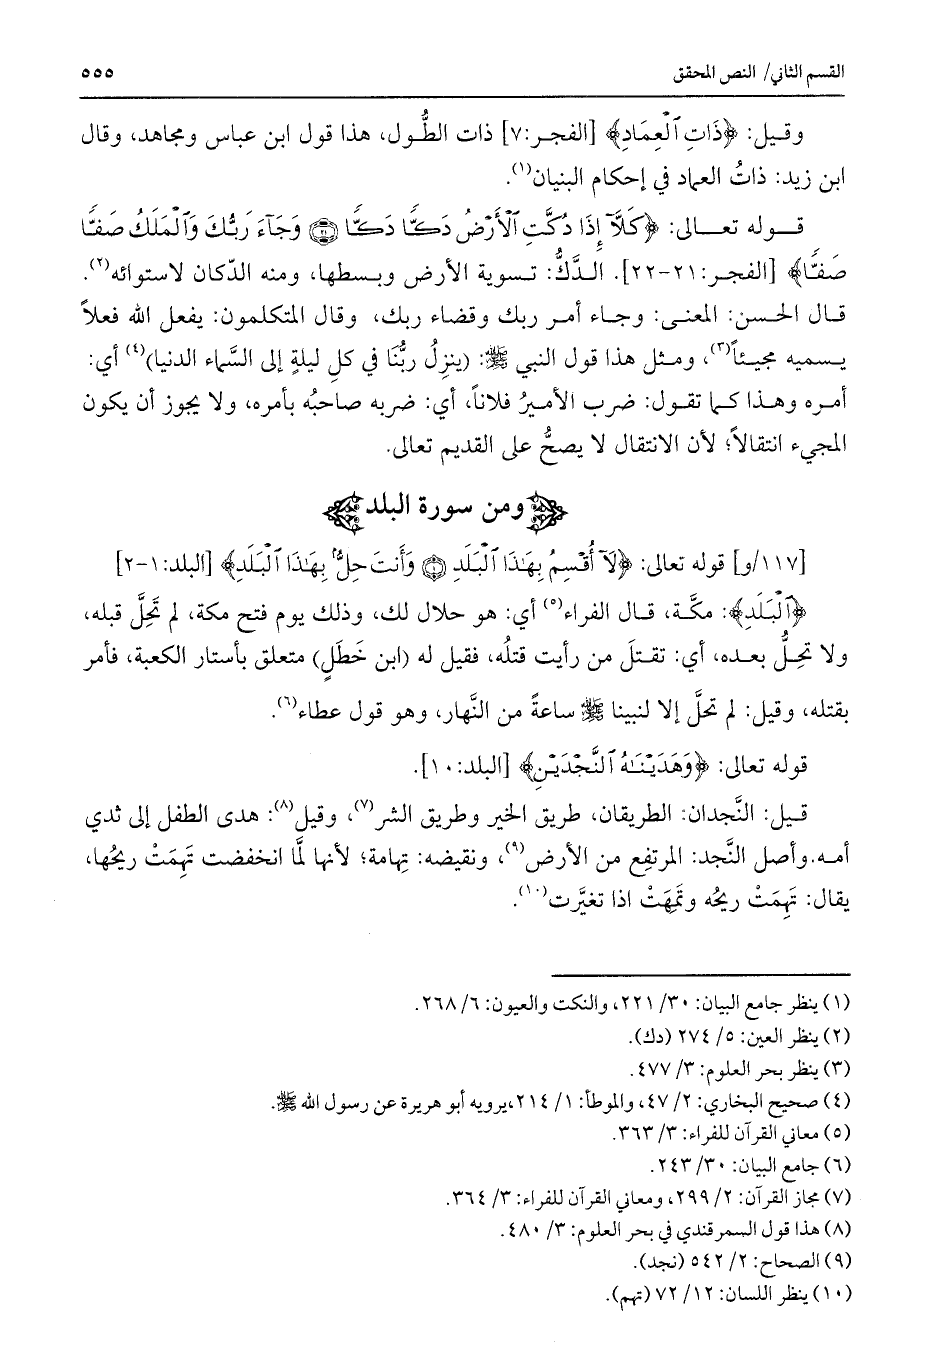 القسم الثاني/ النص المحقق ٥٥٥
وقيل: ﴿ذَاتِ ٱلْعِمَادِ﴾ [الفجر:٧] ذات الطُّول، هذا قول ابن عباس ومجاهد، وقال
ابن زيد: ذاتُ العماد في إحكام البنيان(١).
قوله تعالى: ﴿كَلَّآ إِذَا دُكَّتِ ٱلْأَرْضُ دَكًّا دَكًّا ۝٢١ وَجَآءَ رَبُّكَ وَٱلْمَلَكُ صَفًّا
صَفًّا﴾ [الفجر:٢١-٢٢]. الدَّكُّ: تسوية الأرض وبسطها، ومنه الدّكان لاستوائه(٢).
قال الحسن: المعنى: وجاء أمر ربك وقضاء ربك، وقال المتكلمون: يفعل الله فعلاً
يسميه مجيئاً(٣)، ومثل هذا قول النبي ﷺ: (ينزِلُ ربُّنا في كلِ ليلةٍ إلى السَّماء الدنيا)(٤) أي:
أمره وهذا كما تقول: ضرب الأميرُ فلاناً، أي: ضربه صاحبُه بأمره، ولا يجوز أن يكون
المجيء انتقالاً؛ لأن الانتقال لا يصحُّ على القديم تعالى.
ومن سورة البلد
[١١٧/و] قوله تعالى: ﴿لَآ أُقْسِمُ بِهَٰذَا ٱلْبَلَدِ ۝١ وَأَنتَ حِلٌّۢ بِهَٰذَا ٱلْبَلَدِ﴾ [البلد:١-٢]
﴿ٱلْبَلَدِ﴾: مكَّة، قال الفراء(٥) أي: هو حلال لك، وذلك يوم فتح مكة، لم تَحِلَّ قبله،
ولا تحِلُّ بعده، أي: تقتلَ من رأيت قتلُه، فقيل له (ابن خَطَلٍ) متعلق بأستار الكعبة، فأمر
بقتله، وقيل: لم تحلَّ إلا لنبينا ﷺ ساعةً من النَّهار، وهو قول عطاء(٦).
قوله تعالى: ﴿وَهَدَيْنَٰهُ ٱلنَّجْدَيْنِ﴾ [البلد:١٠].
قيل: النَّجدان: الطريقان، طريق الخير وطريق الشر(٧)، وقيل(٨): هدى الطفل إلى ثدي
أمه.وأصل النَّجد: المرتفع من الأرض(٩)، ونقيضه: تِهامة؛ لأنها لمَّا انخفضت تَهِمَتْ ريحُها،
يقال: تَهِمَتْ ريحُه وتَمِهَتْ اذا تغيَّرت(١٠).
(١) ينظر جامع البيان: ٣٠/ ٢٢١، والنكت والعيون: ٦/ ٢٦٨.
(٢) ينظر العين: ٥/ ٢٧٤ (دك).
(٣) ينظر بحر العلوم: ٣/ ٤٧٧.
(٤) صحيح البخاري: ٢/ ٤٧، والموطأ: ١/ ٢١٤،يرويه أبو هريرة عن رسول الله ﷺ.
(٥) معاني القرآن للفراء: ٣/ ٣٦٣.
(٦) جامع البيان: ٣٠/ ٢٤٣.
(٧) مجاز القرآن: ٢/ ٢٩٩، ومعاني القرآن للفراء: ٣/ ٣٦٤.
(٨) هذا قول السمرقندي في بحر العلوم: ٣/ ٤٨٠.
(٩) الصحاح: ٢/ ٥٤٢ (نجد).
(١٠) ينظر اللسان: ١٢/ ٧٢ (تهم).